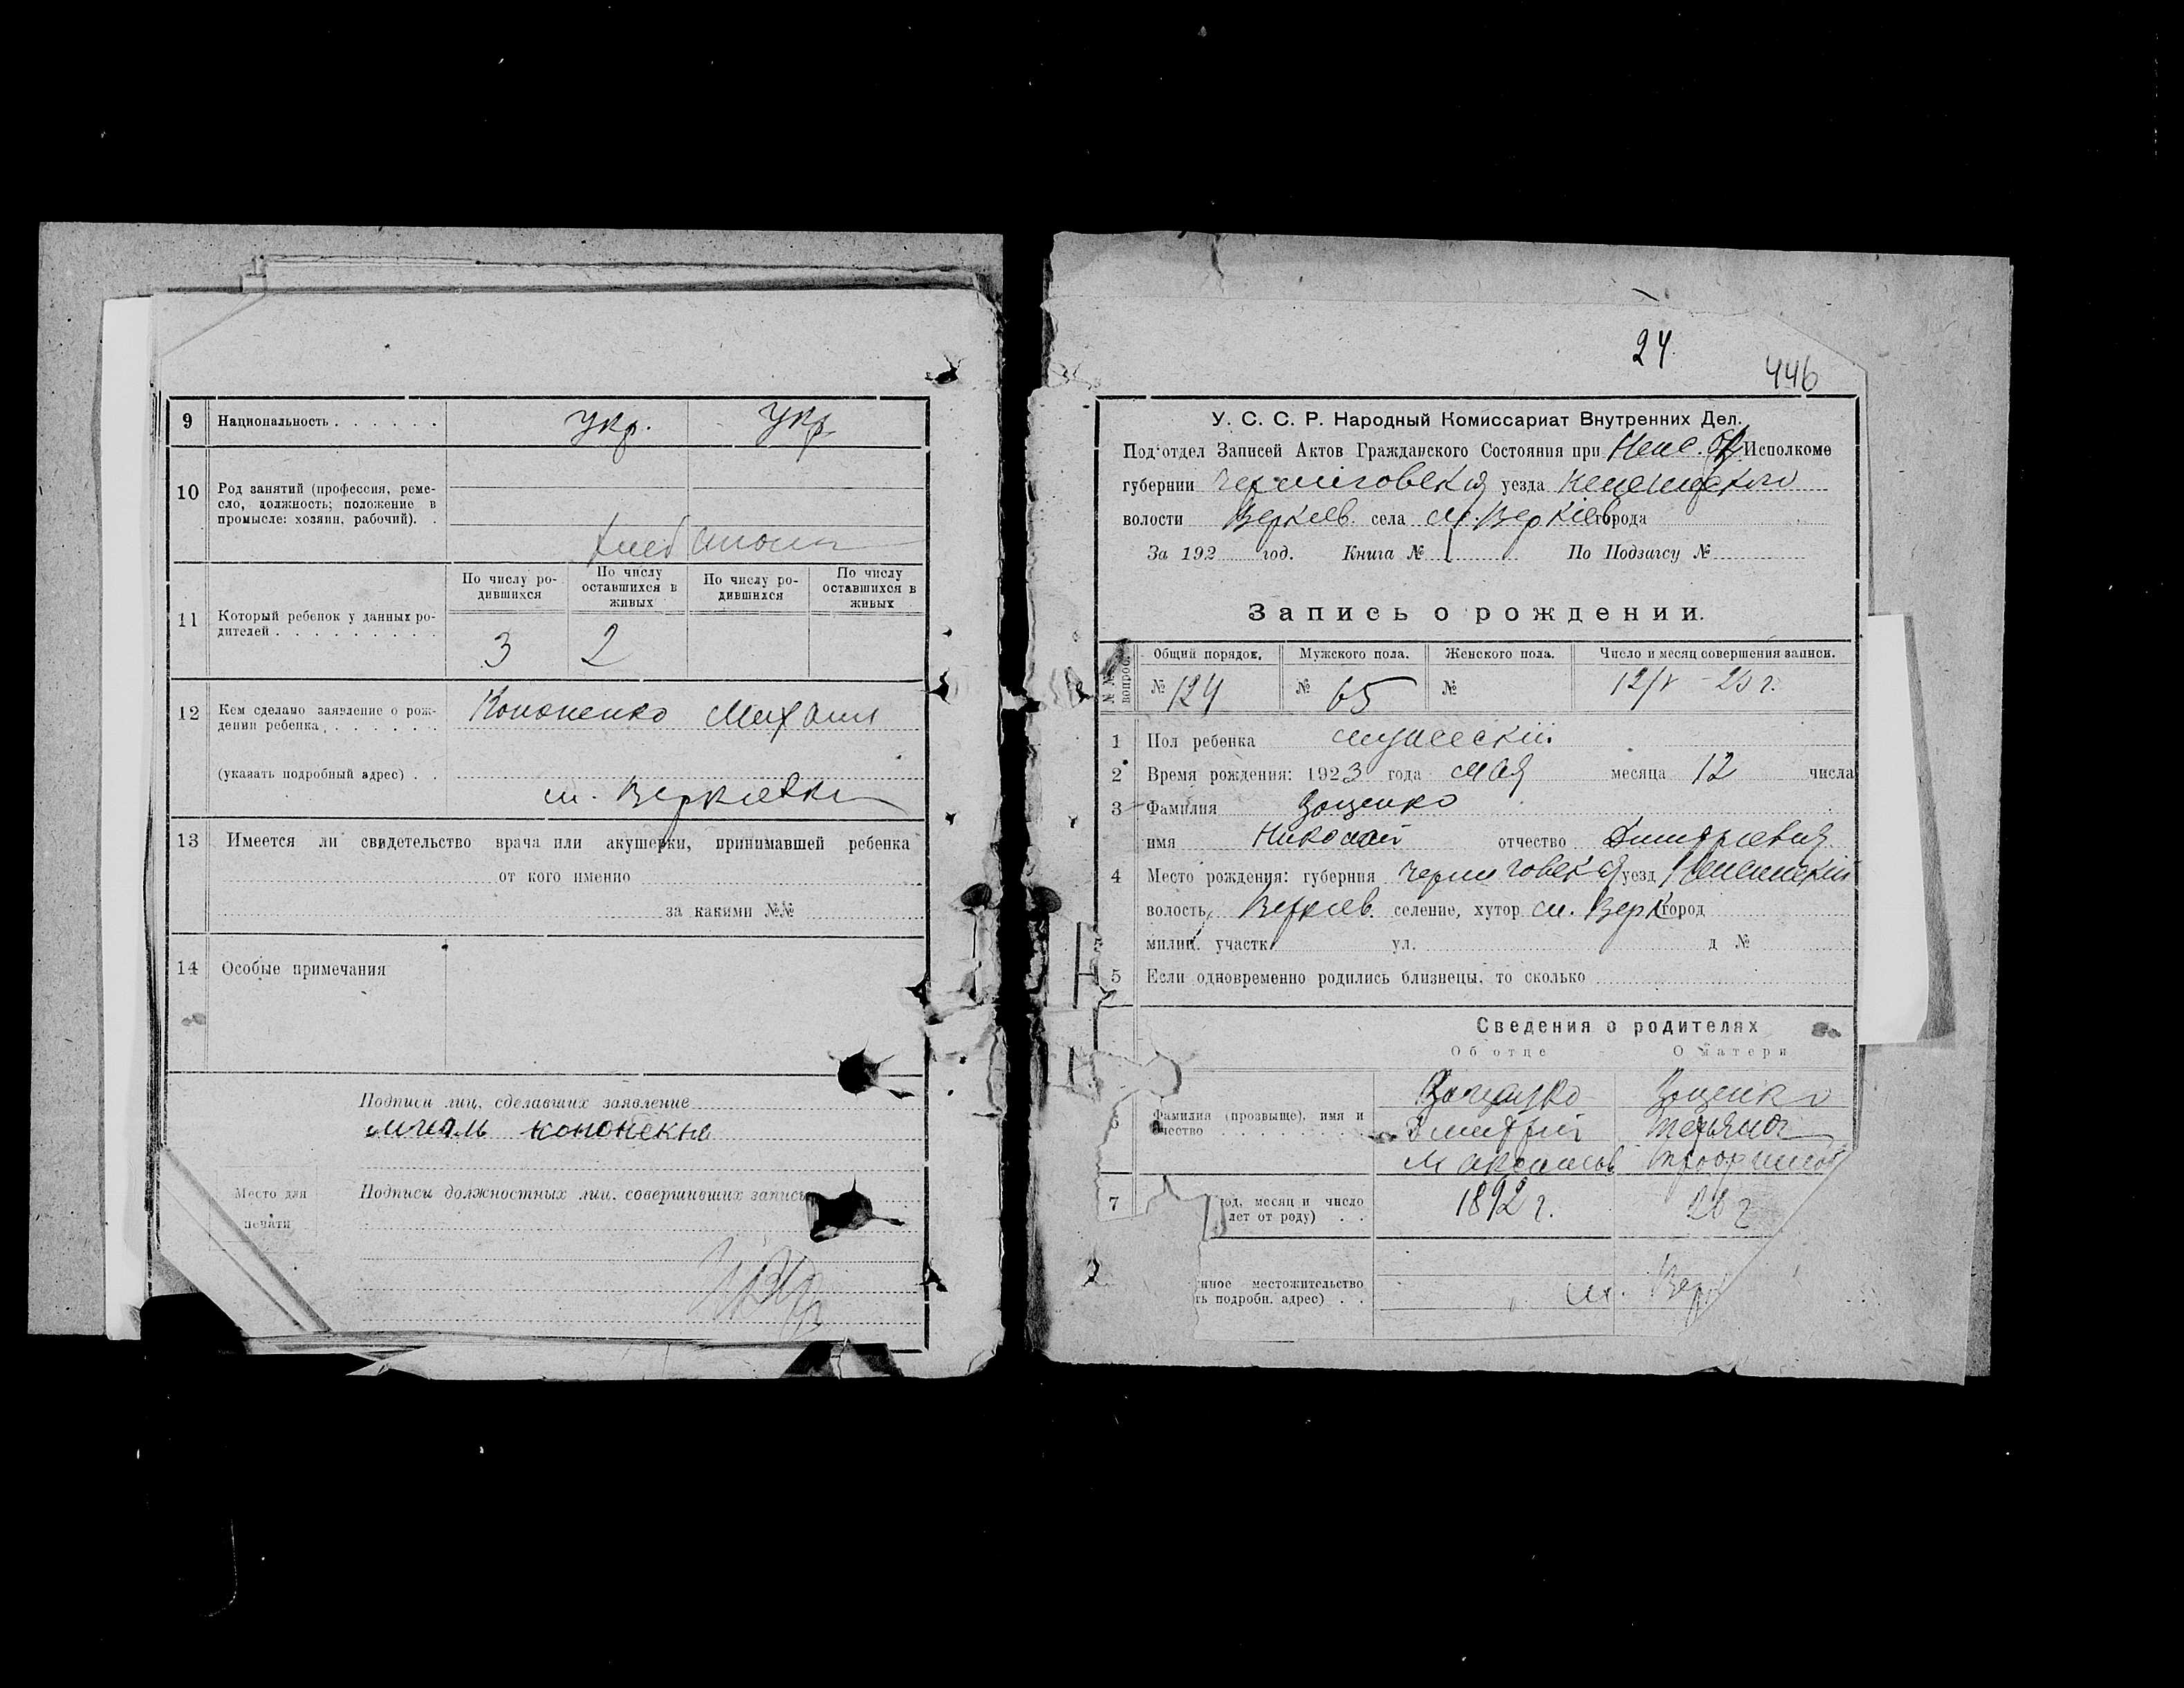 9 Национальность . . . . . . Укр. Укр.
10 Род занятий (профессия, реме-
сло, должность; положение в
промысле: хозяин, рабочий). .
11 Который ребенок у данных ро-
дителей . . . . . . . . .
По числу ро-
дившихся
По числу
оставшихся в
живых
По числу ро-
дившихся
По числу
оставшихся в
живых
3 2
12 Кем сделано заявление о рож-
дении ребенка . . . . . .
Кононенко Михаил
(указать подробный адрес) . .
м. Веркиевка
13 Имеется ли свидетельство врача или акушерки, принимавшей ребенка
от кого именно
за какими №№
14 Особые примечания
Подписи лиц, сделавших заявление
Место для
печати
Подписи должностных лиц, совершивших запись
24
446
У. С. С. Р. Народный Комиссариат Внутренних Дел.
Под'отдел Записей Актов Гражданского Состояния при Исполкоме
губернии Черниговския уезда
волости Веркиев. села м. Веркіев города
За 192 год. Книга № По Подзагсу №
Запись о рождении.
№№ вопрос.
Общий порядок. Мужского пола. Женского пола. Число и месяц совершения записи.
№ 124 № 65 № 12/V - 23 г.
1 Пол ребенка мужескій.
2 Время рождения: 1923 года мая месяца 12 числа
3 Фамилия Зощенко
имя Николай отчество Дмитриевич
4 Место рождения: губерния Черниговския уезд
волость Веркиев. селение, хутор м. Верк город
милиц. участк. ул. д №
5 Если одновременно родились близнецы, то сколько
Сведения о родителях
Об отце О матери
6 Фамилия (прозвище), имя и
отчество . . . . . . . .
Зощенко Зощенко
Дмитрий Татьяна
Максимов
7 год, месяц и число
лет от роду) . .
1892 г. 26 г
местожительство
подробн. адрес) . .
м. Вер